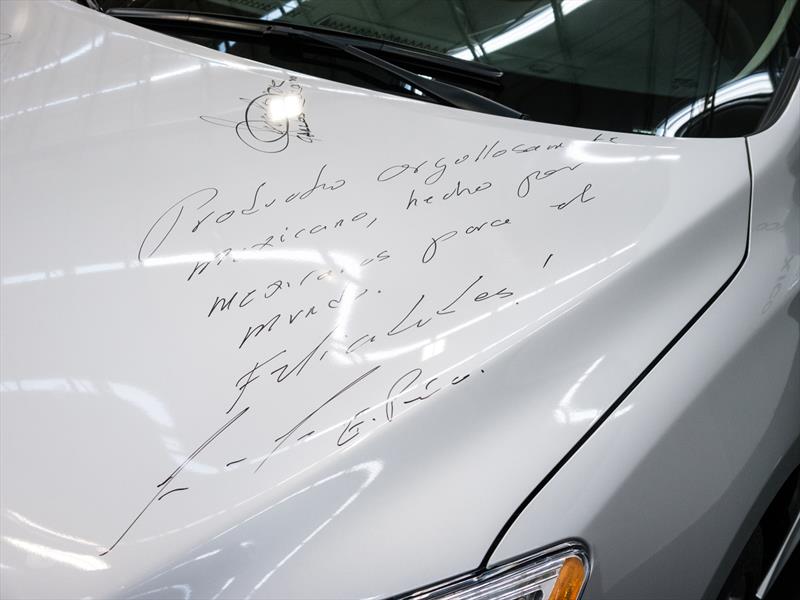 Producto orgullosamente
mexicano, hecho por
mexicanos para el
mundo.
Felicidades!